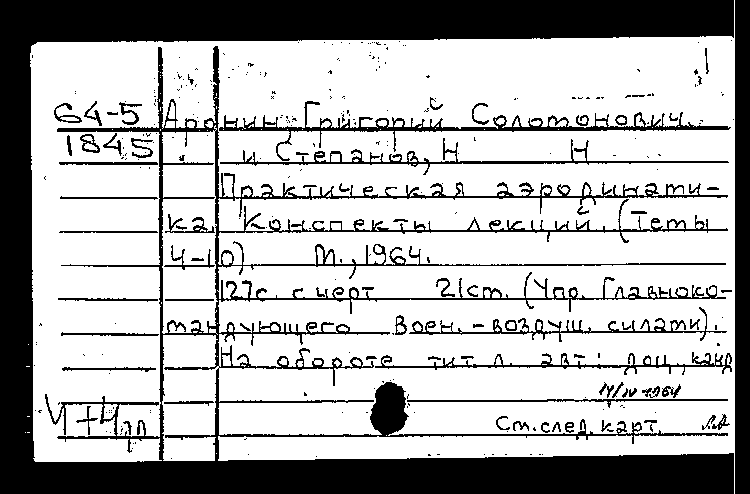 64-5 Аронин, Григорий Соломонович.
1845 и Степанов, Н Н
Практическая аэродинами-
ка. Конспекты лекций. (Темы
4-10). М., 1964.
127с. с черт. 21см. (Упр. Главноко-
мандующего Воен.-воздуш. силами).
На обороте тит. л. авт.: доц., канд
14/IV-1964
Ч+4
См. след. карт.